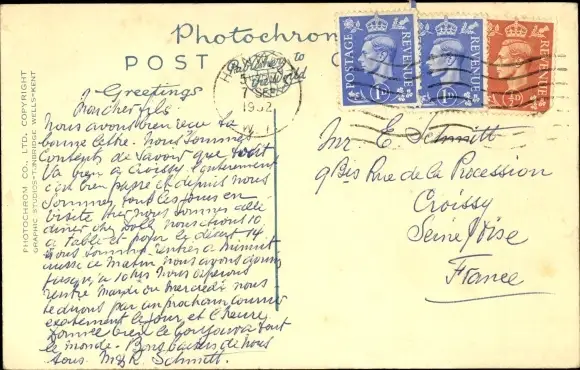 Photochrom
POST C
Greetings
5
7 SEP
1952
W. 1
POSTAGE REVENUE
1D
POSTAGE REVENUE
1D
REVENUE
½D
PHOTOCHROM CO., LTD. COPYRIGHT
GRAPHIC STUDIOS-TUNBRIDGE WELLS-KENT
Mon cher fils
Nous avons bien reçu ta
bonne lettre. Nous sommes
contents de savoir que tout
va bien a Croissy l'enterrement
c'est bien passé et depuis nous
sommes tous les jours en
visite chez nous sommes
diner chez nous étions 10
a table et pour le désert 14
nous sommes rentrés a minuit
aussi ce matin nous avons dormi
jusqu'a 10 hrs nous espérons
rentré Mardi ou Mercredi nous
te dirons par un prochain courrier
exactement le jour, et l'heure
bien le bonjour a tout
le monde. Bons baisers de nous
tous. M & R. Schmitt.
Mr E Schmitt
9 Bis Rue de la Procession
Croissy
Seine/Oise
France